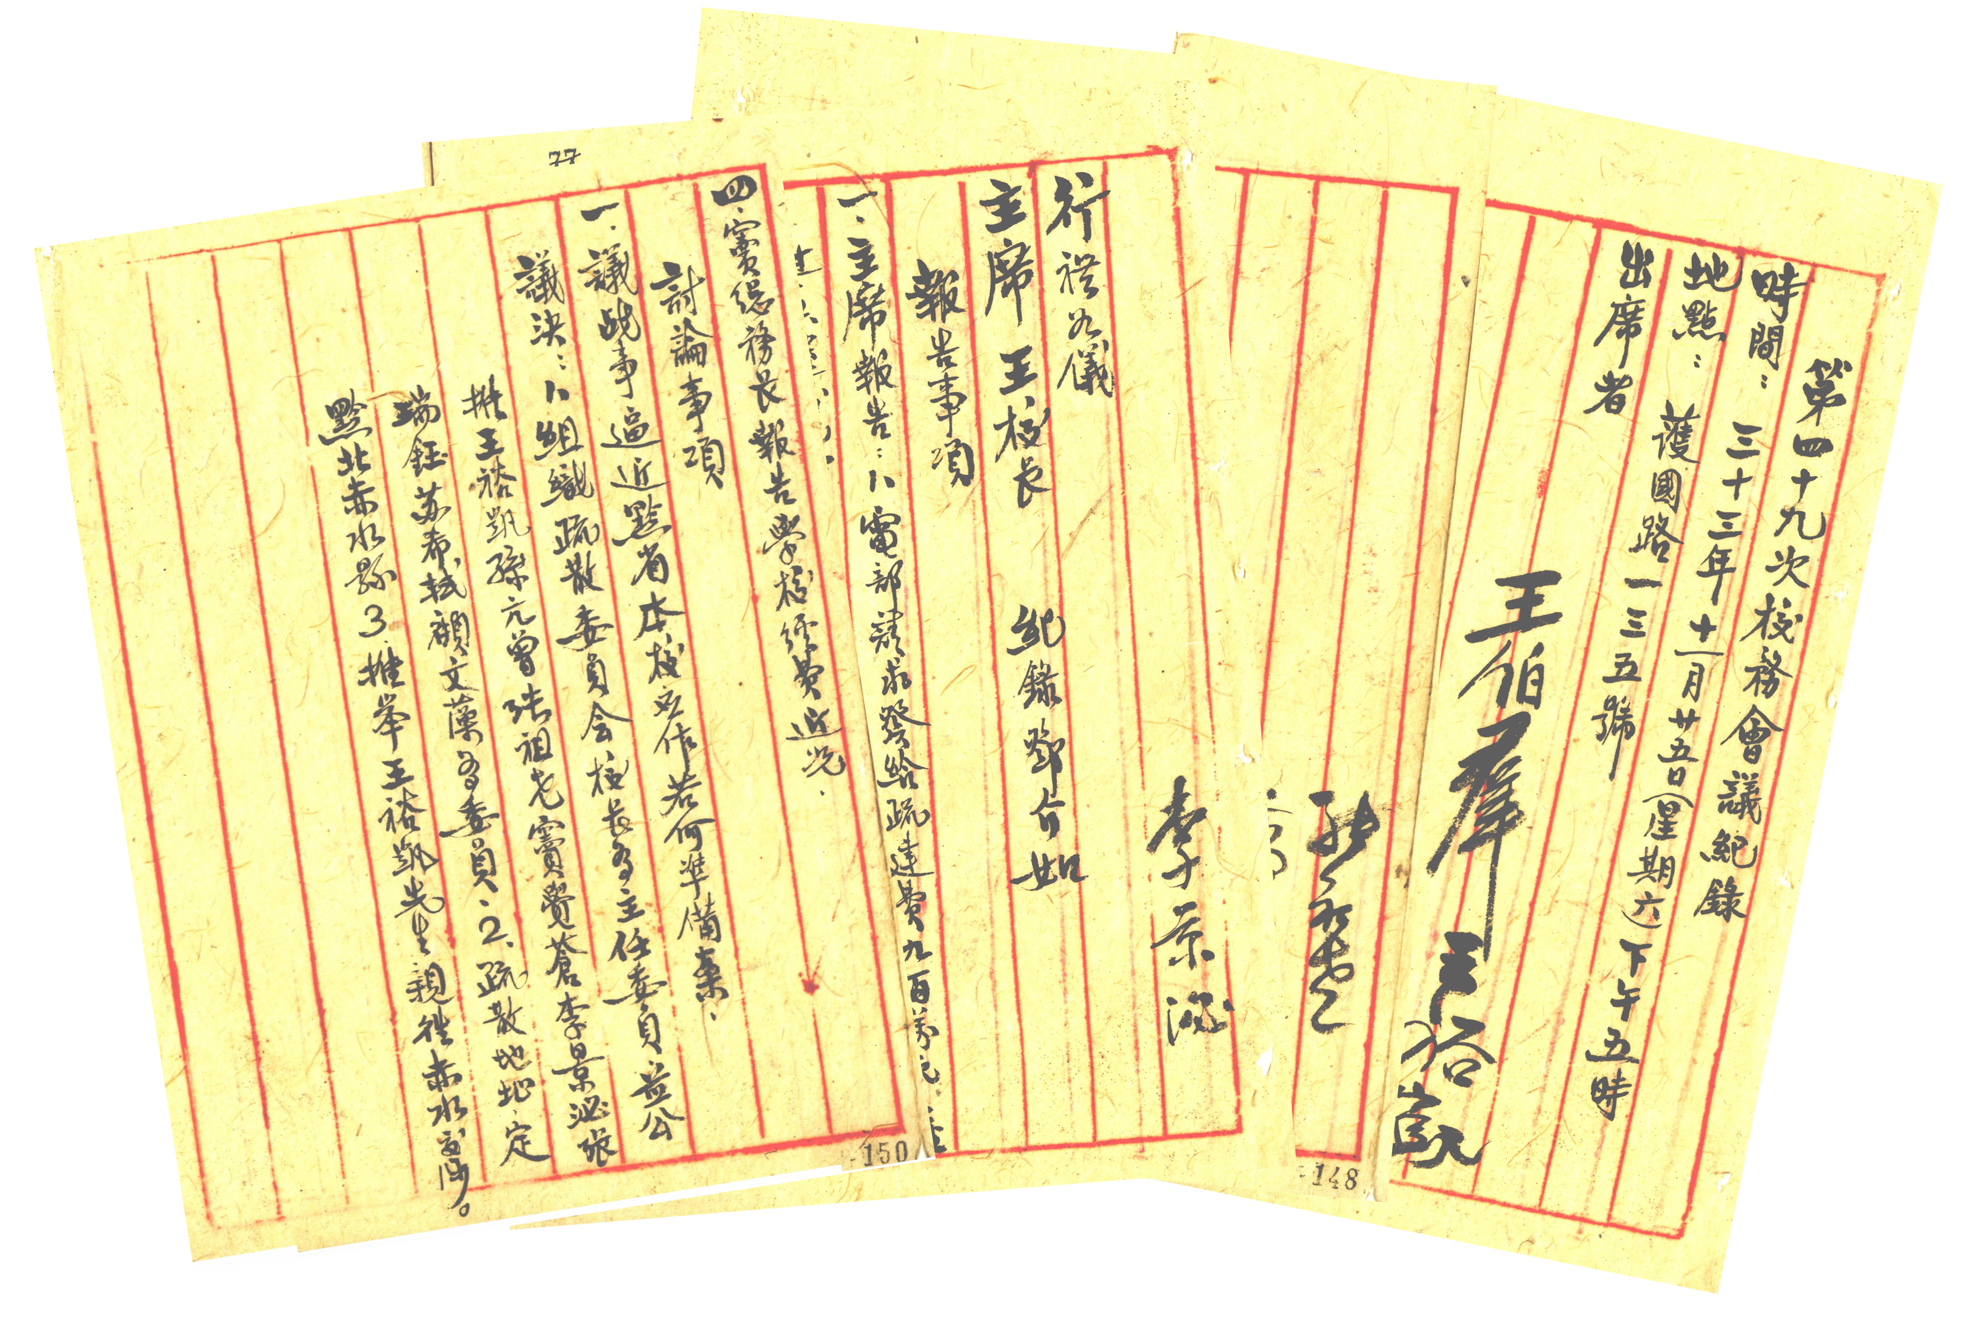 第四十九次校務會議紀錄
時間：三十三年十一月廿五日（星期六）下午五時
地點：護國路一三五號
出席者
王伯羣 王裕凱
148
李景泌
行禮如儀
主席 王校長 紀錄 鄧介如
報告事項
一、主席報告：1、電部請求發給疏建費九百萬元
77
四、竇總務長報告學校經費近況、
討論事項
一、議战事逼近黔省本校应作若何準備案、
議決：1、組織疏散委員会校長为主任委員並公
推王裕凱孫亢曾張祖尧竇覺蒼李景泌張
瑞鈺苏希軾顧文藻为委員、2、疏散地址、定
黔北赤水縣3推举王裕凱先生親往赤水
150